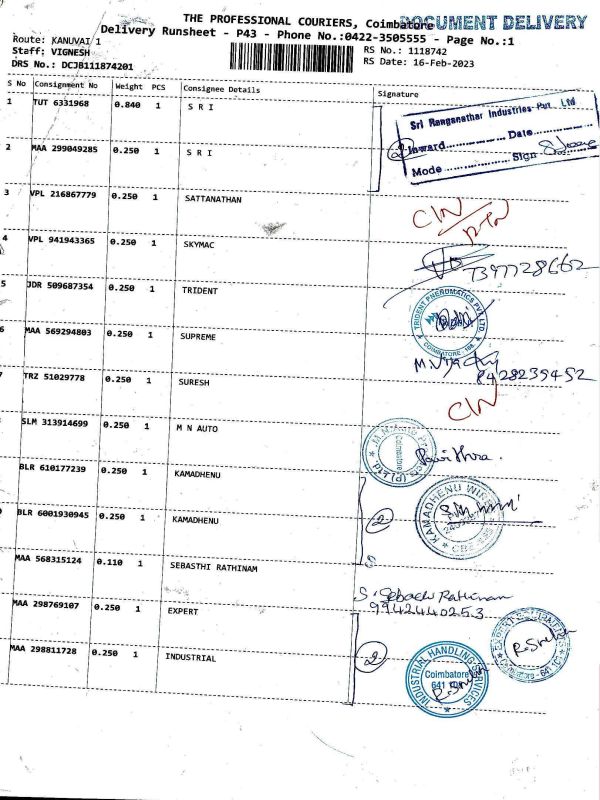 THE PROFESSIONAL COURIERS, Coimbatore
DOCUMENT DELIVERY
Delivery Runsheet - P43 - Phone No.:0422-3505555 - Page No.:1
Route: KANUVAI 1
Staff: VIGNESH
DRS No.: DCJB111874201
RS No.: 1118742
RS Date: 16-Feb-2023
S No Consignment No Weight PCS Consignee Details Signature
1 TUT 6331968 0.840 1 S R I
Sri Ranganathar Industries Pvt. Ltd
Inward Date
Mode Sign
2
2 MAA 299049285 0.250 1 S R I
3 VPL 216867779 0.250 1 SATTANATHAN
CIN
4 VPL 941943365 0.250 1 SKYMAC
7397728662
5 JDR 509687354 0.250 1 TRIDENT
TRIDENT PNEUMATICS PVT. LTD.
COIMBATORE
6 MAA 569294803 0.250 1 SUPREME
8428239452
7 TRZ 51029778 0.250 1 SURESH
CIN
SLM 313914699 0.250 1 M N AUTO
Coimbatore
Pavithra.
BLR 610177239 0.250 1 KAMADHENU
BLR 6001930945 0.250 1 KAMADHENU
2
KAMADHENU WIRE
CBE
MAA 568315124 0.110 1 SEBASTHI RATHINAM
S. Sebasti Rathinam
9942440253
MAA 298769107 0.250 1 EXPERT
MAA 298811728 0.250 1 INDUSTRIAL
2
INDUSTRIAL HANDLING SERVICES
Coimbatore
641